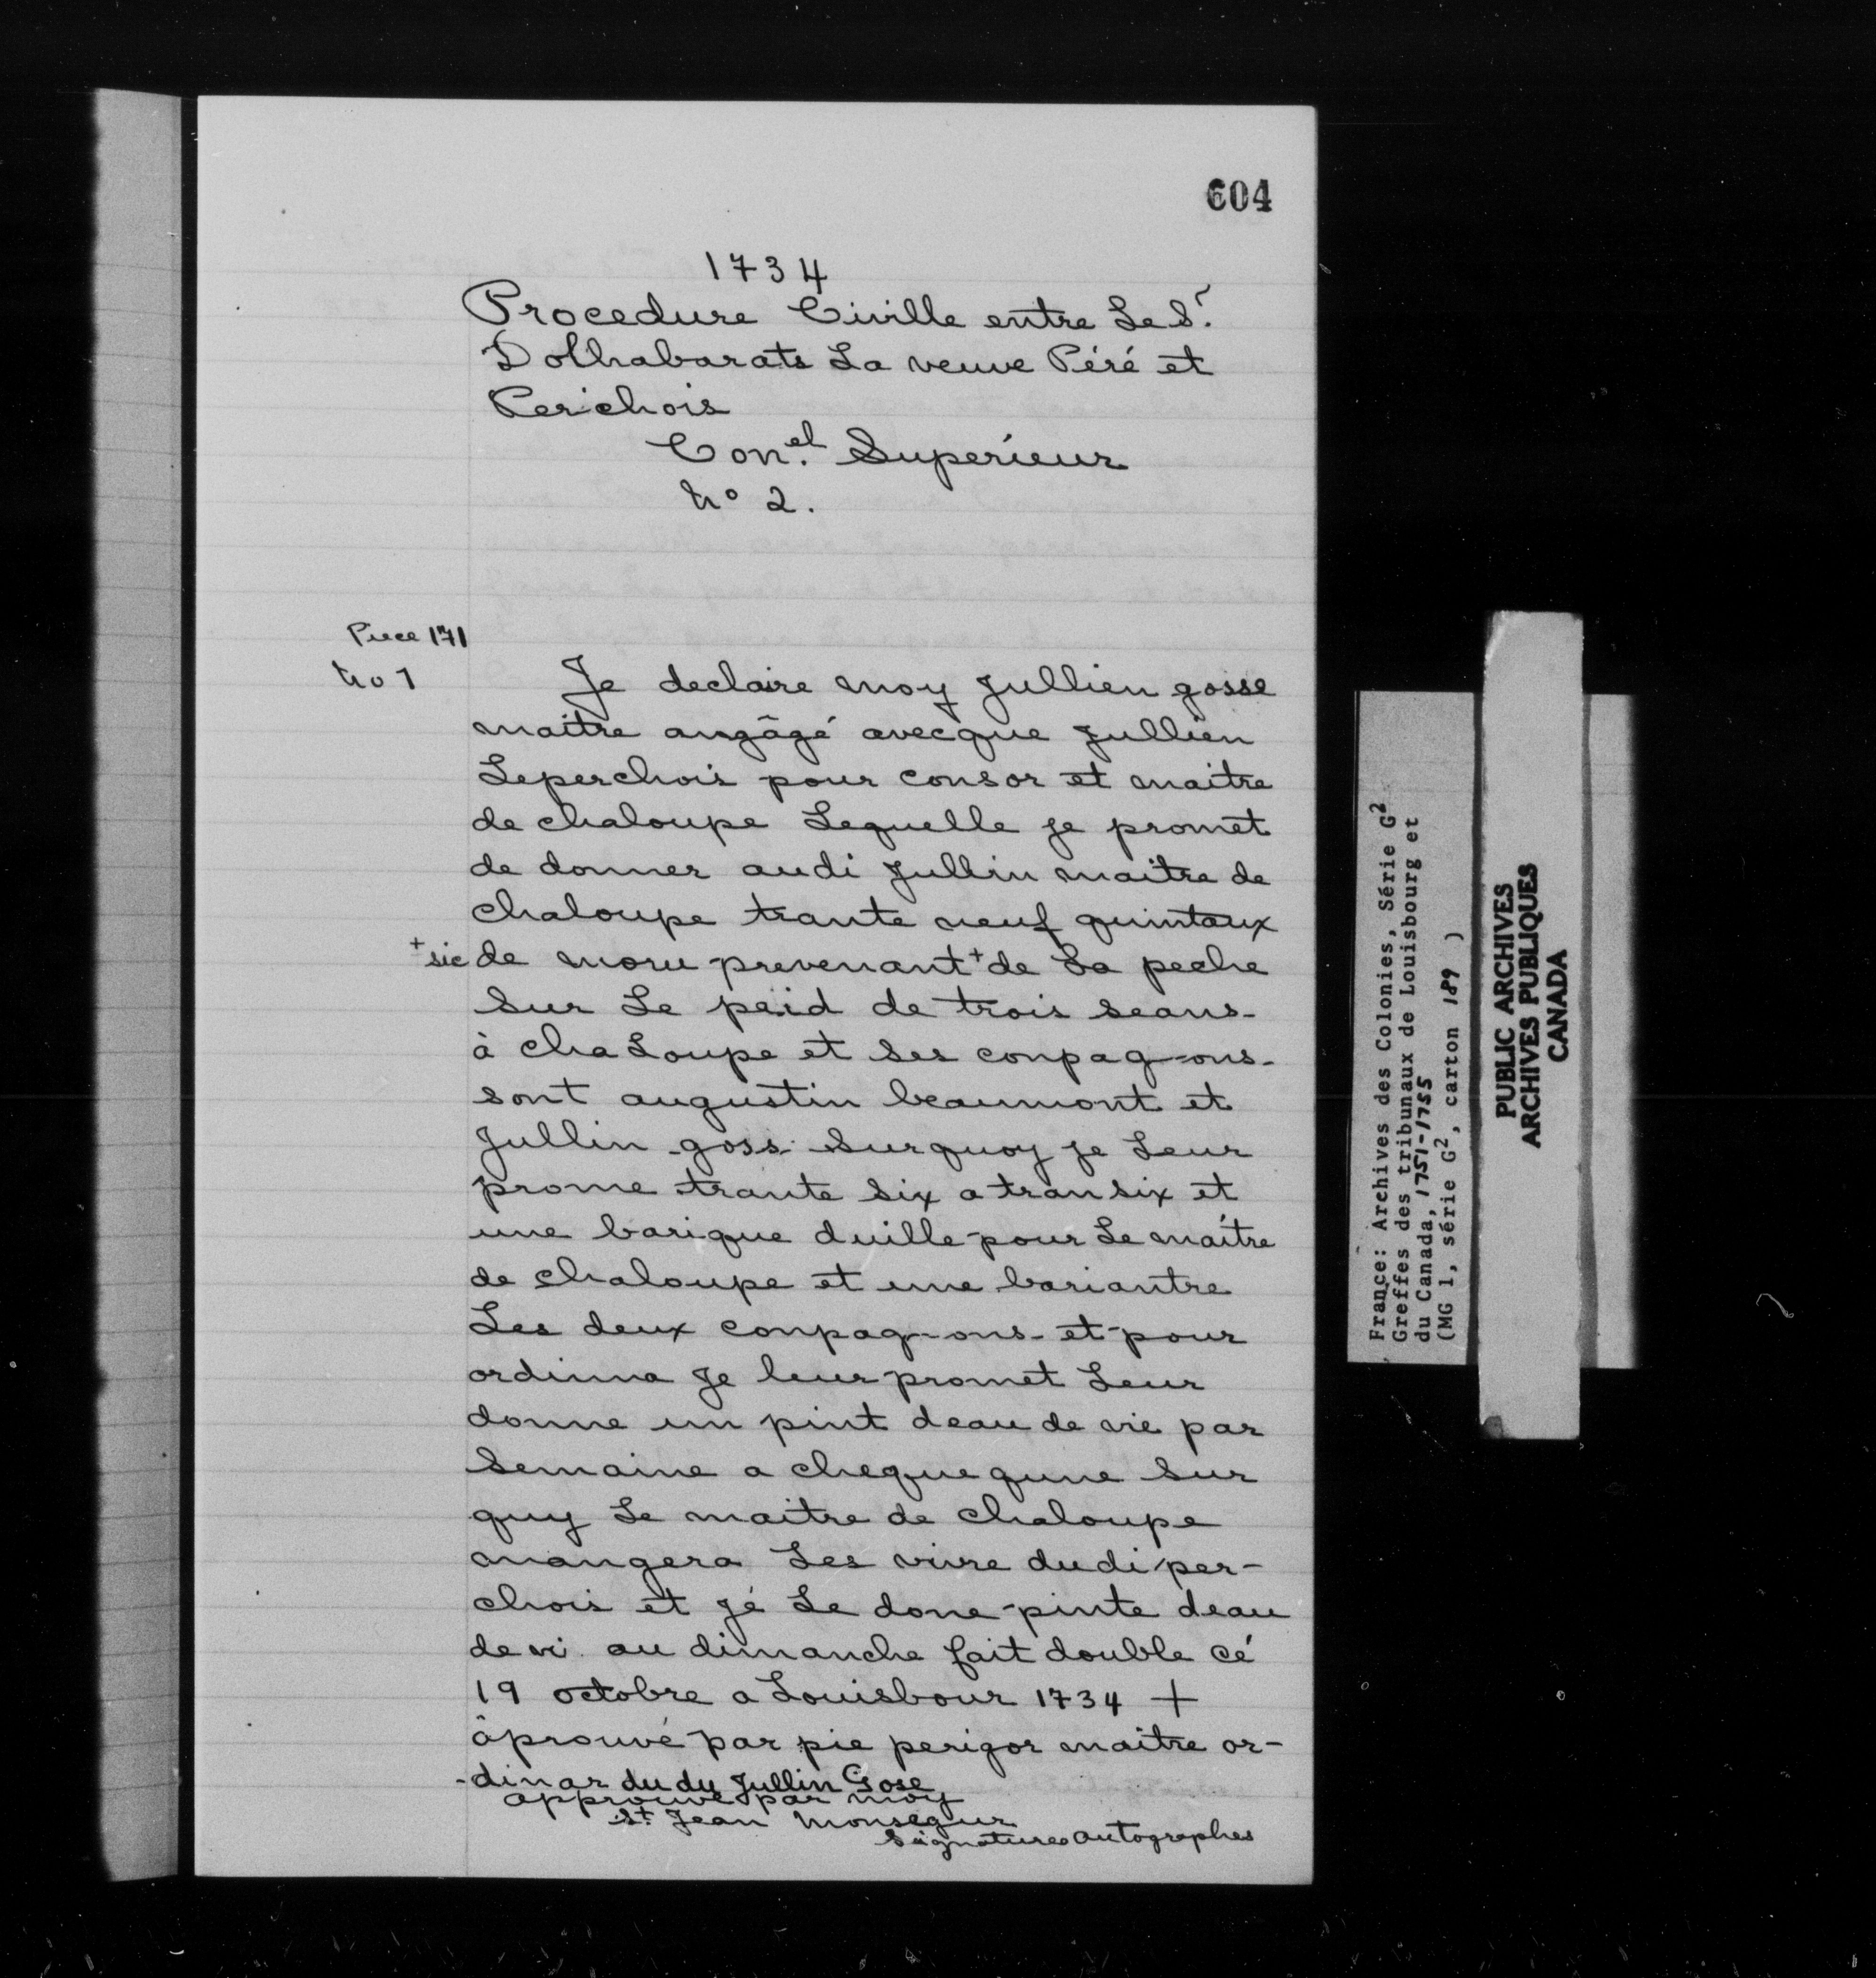 604
1734
Procedure Civille entre Le Sr.
Dolhabarats La veuve Péré et
Perichois
Conel. Superieur
No 2.
Piece 171
No 1
Je declaire moy Jullien gosse
maitre angâgé avecque Jullien
Leperchois pour consor et maitre
de chaloupe Lequelle je promet
de donner audi Jullin maitre de
chaloupe trante neuf quintaux
+ sic de moru prevenant + de La peche
sur Le peid de trois seans-
à cha Loupe et ses conpag-ons-
sont augustin beaumont et
Jullin goss- surquoy je Leur
prome trante six a transix et
une barique duille pour Le maitre
de chaloupe et une bariantre
Les deux conpag-ons- et pour
ordinna Je leur promet Leur
donne un pint deau de vie par
Semaine a chequequne sur
quy Le maitre de chaloupe
mangera Les vivre dudi per-
chois et jé Le done pinte deau
de vi au dimanche fait double cé
19 octobre a Louisbour 1734 +
âprouvé par pie perigor maitre or-
-dinar du du Jullin Gose
approuve par moy
St. Jean Monsegur
Signatures autographes
France: Archives des Colonies, Série G2
Greffes des tribunaux de Louisbourg et
du Canada, 1751-1755
(MG 1, série G2, carton 189 )
PUBLIC ARCHIVES
ARCHIVES PUBLIQUES
CANADA